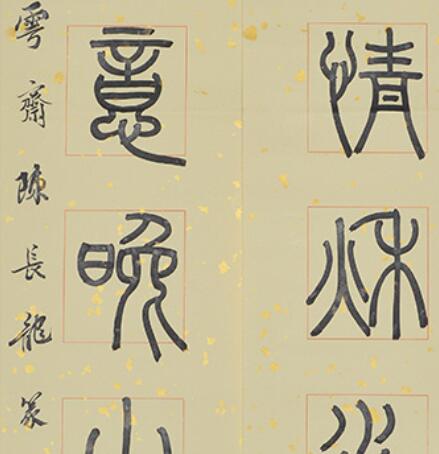 情秋水
意晚
雲齋陳長龍篆